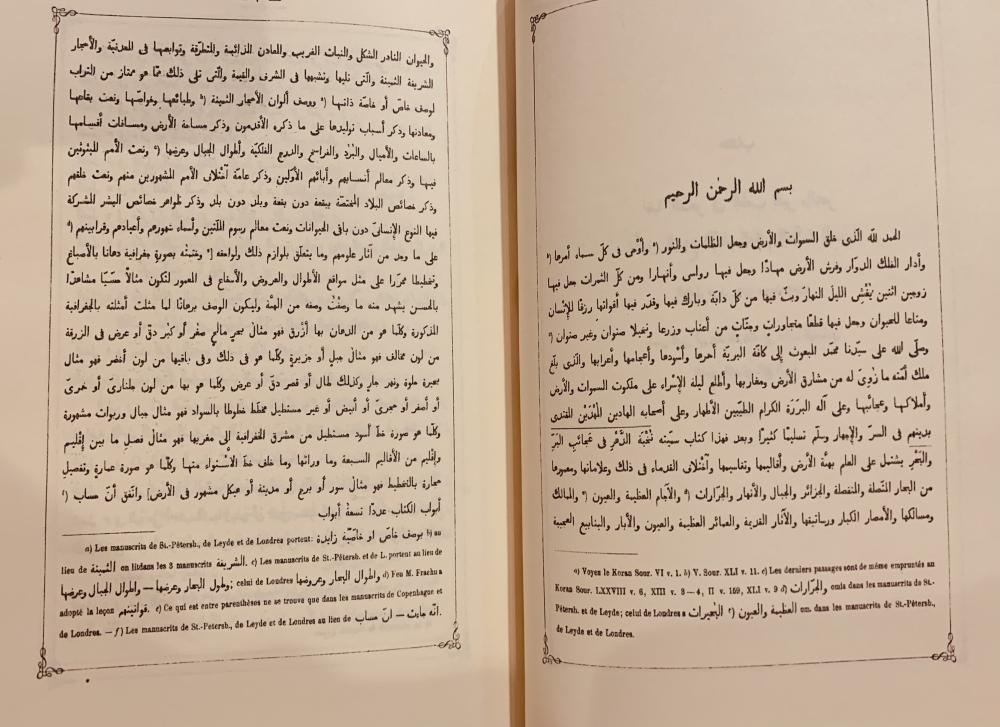 بسم الله الرحمٰن الرحيم
الحمد لله الّذى خلق السموات والأرض وجعل الظلمات والنور a) وأوْحى فى كلّ سماء أمرها b)
وأدار الفلك الدوّار وفرش الأرض مهادًا وجعل فيها رواسى وأنهارا ومن كلّ الثمرات جعل فيها
زوجين اثنين يُغْشِى الليل النهارَ وبثّ فيها من كلّ دابّة وبارك فيها وقدّر فيها أقواتها رزقا للإنسان
ومتاعا للحيوان وجعل فيها قطعًا متجاوراتٍ وجنّاتٍ من أعناب وزرعا ونخيلا صنوان وغير صنوان c)
وصلّى الله على سيّدنا محمّد المبعوث إلى كافّة البريّة أحمرها وأسْودها وأعجامها وأعرابها والّذى بلغ
ملك أمّته ما زُوِىَ له من مشارق الأرض ومغاربها وأطلع ليلة الإسْراء على ملكوت السموات والأرض
وأملاكها وعجائبها وعلى آله البرَرَة الكرام الطيّبين الأطهار وعلى أصحابه الهادين المهْديّين المقتدى
بدينهم فى السرّ والإجهار وسلّم تسليمًا كثيرًا وبعد فهذا كتاب سمّيته نُخْبَة الدَّهْر فى عَجائب البَرّ
والبَحْر يشتمل على العلم بهيئة الأرض وأقاليمها وتقاسيمها واَختْلاف القدماء فى ذلك وعلاماتها ومعمورها
من البحار المتّصلة والمنفصلة والجزائر والجبال والأنهار والجرّارات d) والآجام العظيمة والعيون e) والممالك
ومسالكها والأمصار الكبار ورساتيقها والآثار القديمة والعمائر العظيمة والعيون والآبار والينابيع العجيبة
a) Voyes le Koran Sour. VI v. 1. b) V. Sour. XLI v. 11. c) Les derniers passages sont de même empruntés au
Koran Sour. LXXVIII v. 6, XIII v. 3—4, II v. 159, XLI v. 9 d) والجرّارات omis dans les manuscrits de St.-
Pétersb. et de Leyde; celui de Londres a البحيرات e) العظيمة والعيون om. dans les manuscrits de St.-Pétersb.,
de Leyde et de Londres.
والحيوان النادر الشكل والنبات الغريب والمعادن الذائبة والمتطرّقة وتوابعها فى المعدنيّة والأحجار
الشريفة الثمينة والّتى تليها وتشبهها فى الشرف والقيمة والّتى تلى ذلك ممّا هو ممتاز من التراب
لوصف خاصّ أو خاصّة ذاتها a) ووصف ألوان الأحجار الثمينة b) وطبائعها وخواصّها ونعت بقاعها
ومعادنها وذكر أسباب توليدها على ما ذكره الأقدمون وذكر مساحة الأرض ومسافات أقسامها
بالساعات والأميال والبُرُد والفراسخ والدرج الفلكيّة وأطوال الجبال وعرضها c) ونعت الأمم المبثوثين
فيها وذكر معالم أنسابهم وأبائهم الأوّلين وذكر عامّة اَختْلاف الأمم المشهورين منهم ونعت خلقهم
وذكر خصائص البلاد المختصّة ببقعة دون بقعة وبلد دون بلد وذكر ظواهر خصائص البشر المشتركة
فيها النوع الإنسانى دون باقى الحيوانات ونعت معالم رسوم الملّتين وأسماء شهورهم وأعيادهم وقرابينهم d)
على ما وجد من آثار علومهم وما يتعلّق بلوازم ذلك ولواحقه [e وختمْتُه بصورة جغرافية دهانا بالأصباغ
وتخطيطا محرّرا على مثل مواقع الأطوال والعروض والأسقاع فى المعمور لتكون مثالا حسّيّا مشاهدًا
بالحسن يشهد منه ما وصفْت وصفه من الهيئة وليكون الوصف برهانًا لما مثلت أمثلته بالجغرافية
المذكورة وكلّما هو من الدهان بها أزْرق فهو مثال بحر مالح صغُر أو كبُر دقّ أو عرض فى الزرقة
من لون مخالف فهو مثال جبل أو جزيرة وكلّما هو فى ذلك وفى باقيها من لون أخضر فهو مثال
بحيرة حلوة ونهر جار وكذلك لطال أو قصر دقّ أو عرض وكلّما هو بها من لون جلنارى أو خمرى
أو أصفر أو حجرى أو أبيض أو غير مستطيل مخطّط خطوطا بالسواد فهو مثال جبال وربوات مشهورة
وكلّما هو صورة خطّ أسود مستطيل من مشرق الجغرافية الى مغربها فهو مثال فصل ما بين إقْليم
وإقليم من الأقاليم السبعة وما ورائها وما خلف خطّ الاَسْتواء منها وكلّما هو صورة عمارة وتفصيل
حجارة بالتخطيط فهو مثال سور أو برج أو مدينة أو هيكل مشهور فى الأرض] واتّفق أنّ حساب f)
أبواب الكتاب عددًا تسعةُ أبواب
a) Les manuscrits de St.-Pétersb., de Leyde et de Londres portent: بوصف خاصّ او خاصّيّة زايدة b) au
lieu de الثمينة on litdans les 3 manuscrits الشريفة. c) Les manuscrits de St.-Pétersb. et de L. portent au lieu de
واطوال الجبال وعرضها — وطول البحار وعرضها; celui de Londres واطوال البحار وعروضها d) Feu M. Fræhn a
adopté la leçon قوانينهم. e) Ce qui est entre parenthèses ne se trouve que dans les manuscrits de Copenhague et
de Londres. — f) Les manuscrits de St.-Petersb., de Leyde et de Londres au lieu de انّ حساب — انّه جاءت.